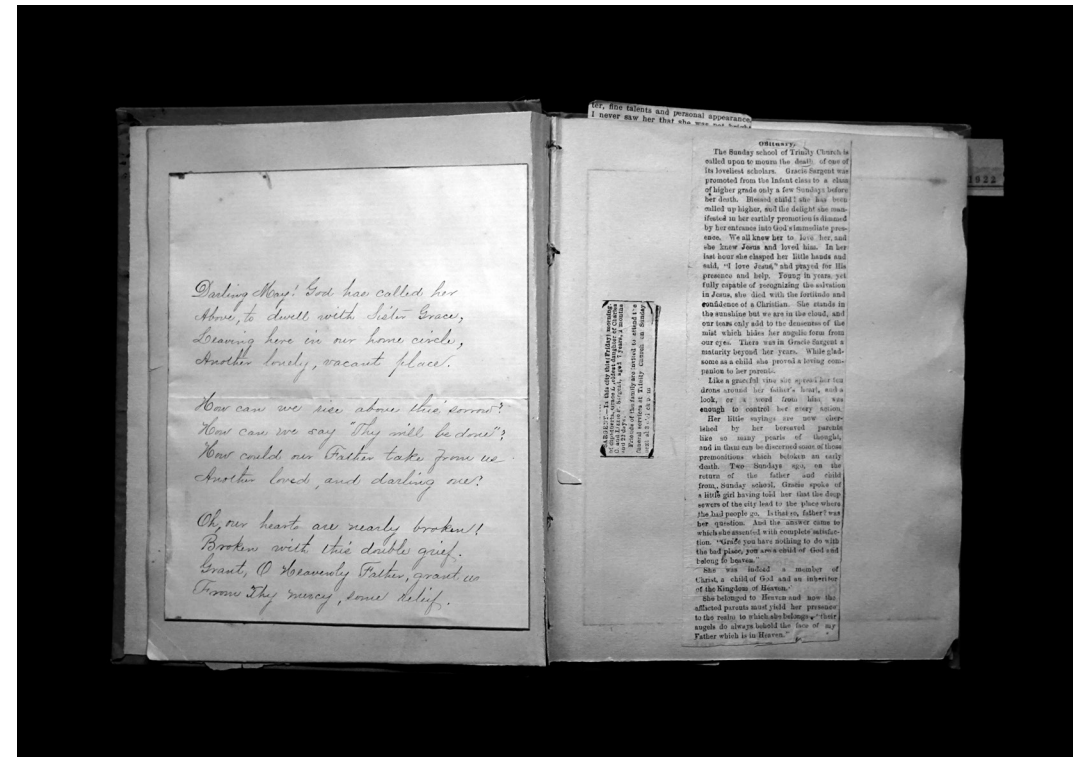 Darling May! God has called her
Above, to dwell with Sister Grace,
Leaving here in our home circle,
Another lonely, vacant place.
How can we rise above this sorrow?
How can we say "Thy will be done"?
How could our Father take from us
Another loved, and darling one?
Oh, our hearts are nearly broken!
Broken with this double grief.
Grant, O Heavenly Father, grant us
From Thy mercy, some relief.
ter, fine talents and personal appearance,
I never saw her that she was not bright
1622
SARGENT.—In this city this (Friday) morning,
of diphtheria, Grace L, oldest daughter of Charles
and Lizzie F. Sargent, aged 7 years, 2 months
and 22 days.
Friends of the family are invited to attend the
funeral services at Trinity Church on Sunday
Obituary.
The Sunday school of Trinity Church is
called upon to mourn the death of one of
its loveliest scholars. Gracie Sargent was
promoted from the Infant class to a class
of higher grade only a few Sundays before
her death. Blessed child! she has been
called up higher, and the delight she man-
ifested in her earthly promotion is dimmed
by her entrance into God's immediate pres-
ence. We all knew her to love her, and
she knew Jesus and loved him. In her
last hour she clasped her little hands and
said, "I love Jesus," and prayed for His
presence and help. Young in years, yet
fully capable of recognizing the salvation
in Jesus, she died with the fortitude and
confidence of a Christian. She stands in
the sunshine but we are in the cloud, and
our tears only add to the denseness of the
mist which hides her angelic form from
our eyes. There was in Gracie Sargent a
maturity beyond her years. While glad-
some as a child she proved a loving com-
panion to her parents.
Like a graceful vine she spread her ten
drons around her father's heart, and a
look, or a word from him, was
enough to control her every action.
Her little sayings are now cher-
ished by her bereaved parents
like so many pearls of thought,
and in them can be discerned some of those
premonitions which betoken an early
death. Two Sundays ago, on the
return of the father and child
from Sunday school, Gracie spoke of
a little girl having told her that the deep
sewers of the city lead to the place where
the bad people go. Is that so, father? was
her question. And the answer came to
which she assented with complete satisfac-
tion. "Gracie you have nothing to do with
the bad place, you are a child of God and
belong to heaven."
She was indeed a member of
Christ, a child of God and an inheritor
of the Kingdom of Heaven.
She belonged to Heaven and now the
afflicted parents must yield her presence
to the realm to which she belongs, "their
angels do always behold the face of my
Father which is in Heaven."